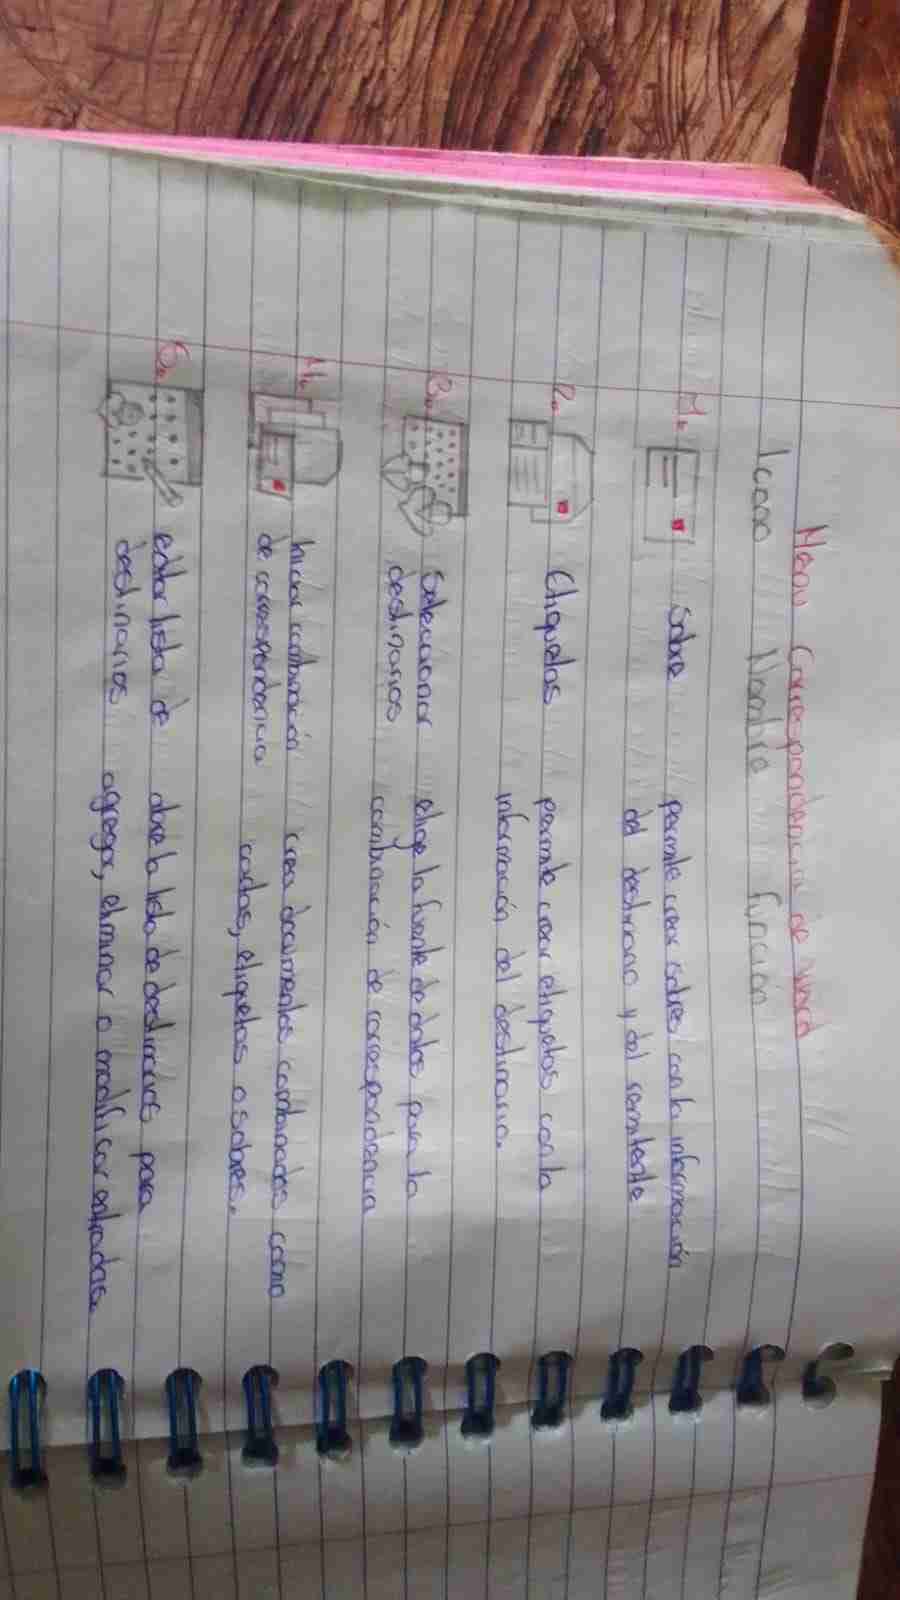 Menu Correspondencia de Word
Icono Nombre función
1. Sobre permite crear sobres con la información
del destinario y del remitente
2. Etiquetas permite crear etiquetas con la
información del destinario.
3. Seleccionar elige la fuente de datos para la
destinarios combinación de correspondencia
4. Iniciar combinación crea documentos combinados como
de correspondencia cartas, etiquetas o sobres.
5. editar lista de abre la lista de destinarios para
destinarios agregar, eliminar o modificar entradas.